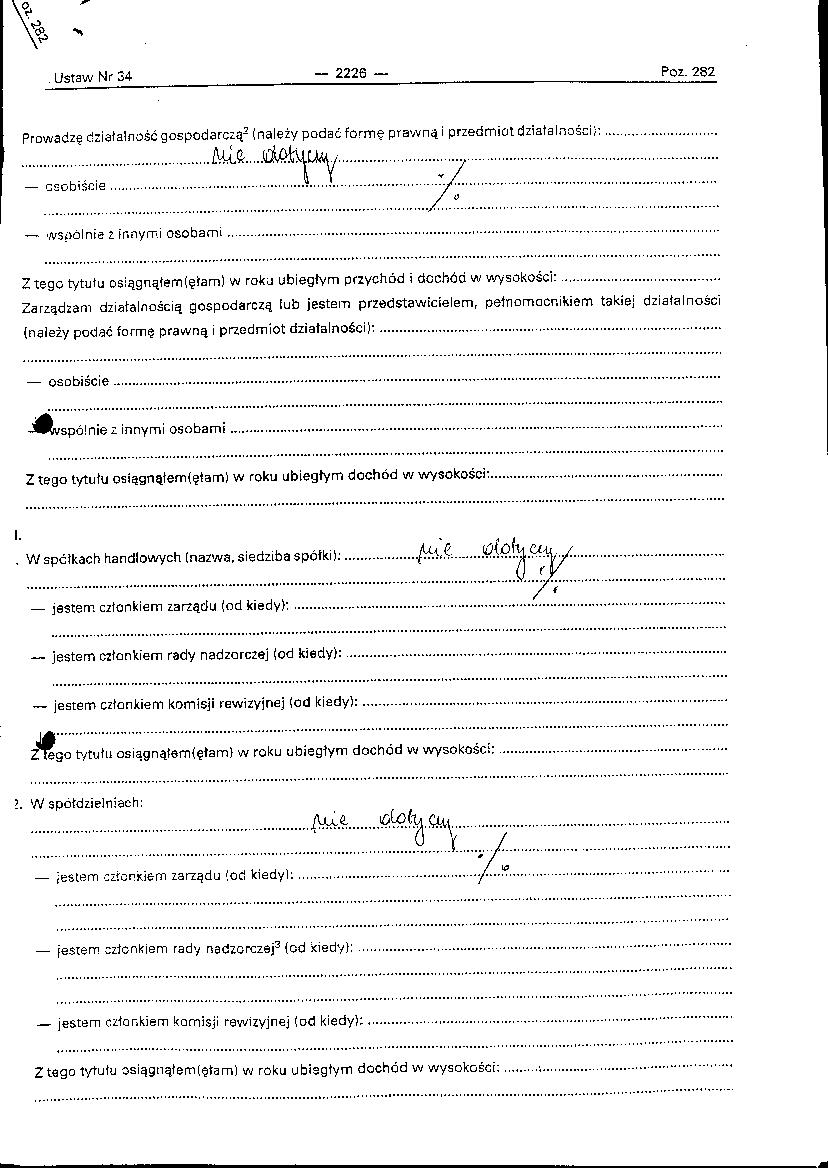 oz. 282
. Ustaw Nr 34 — 2226 — Poz. 282
Prowadzę działalność gospodarczą² (należy podać formę prawną i przedmiot działalności): ..........
nie dotyczy
— osobiście .......... ·/.
— wspólnie z innymi osobami ..........
Z tego tytułu osiągnąłem(ęłam) w roku ubiegłym przychód i dochód w wysokości: ..........
Zarządzam działalnością gospodarczą lub jestem przedstawicielem, pełnomocnikiem takiej działalności
(należy podać formę prawną i przedmiot działalności): ..........
— osobiście ..........
wspólnie z innymi osobami ..........
Z tego tytułu osiągnąłem(ęłam) w roku ubiegłym dochód w wysokości: ..........
I.
. W spółkach handlowych (nazwa, siedziba spółki): nie dotyczy
·/.
— jestem członkiem zarządu (od kiedy): ..........
— jestem członkiem rady nadzorczej (od kiedy): ..........
— jestem członkiem komisji rewizyjnej (od kiedy): ..........
Z tego tytułu osiągnąłem(ęłam) w roku ubiegłym dochód w wysokości: ..........
2. W spółdzielniach:
nie dotyczy
— jestem członkiem zarządu (od kiedy): .......... ·/.
— jestem członkiem rady nadzorczej³ (od kiedy): ..........
— jestem członkiem komisji rewizyjnej (od kiedy): ..........
Z tego tytułu osiągnąłem(ęłam) w roku ubiegłym dochód w wysokości: ..........